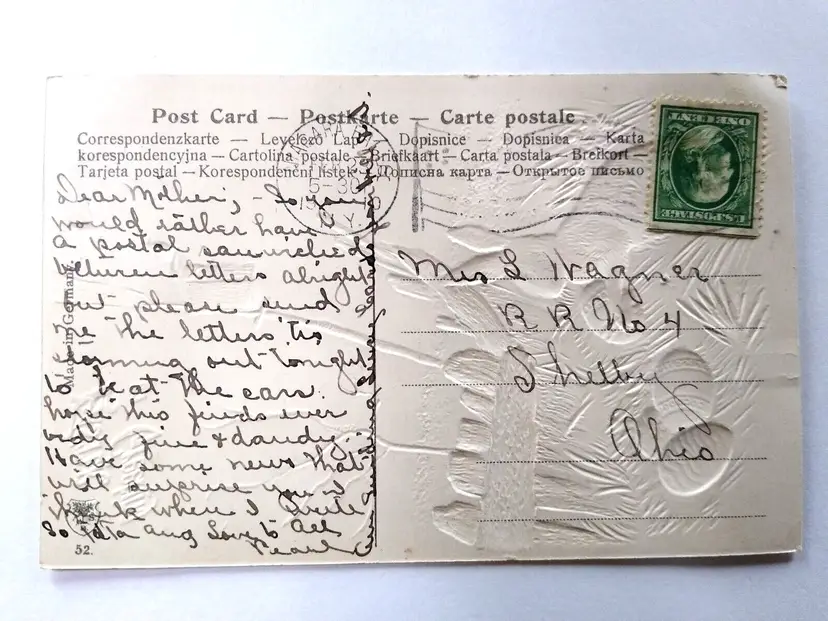 Post Card — Postkarte — Carte postale
Correspondenzkarte — Levelező Lap — Dopisnice — Dopisnica — Karta
korespondencyjna — Cartolina postale — Briefkaart — Carta postala — Brefkort —
Tarjeta postal — Korespondenční lístek — Дописна карта — Открытое письмо
5-30
N.Y.
U.S. POSTAGE
ONE CENT
Dear Mother, - So you
would rather have
a postal sanwiched
between letters alright
but please send
me the letters 'tis
coming out tonight
to beat the cars.
hope this finds ever
vedy fine & dandy.
Have some news that
will surprise you I
think when I write
So ta ta Love to all
Pearl
Made in Germany
52.
Mrs L Wagner
R R No 4
Shelby
Ohio